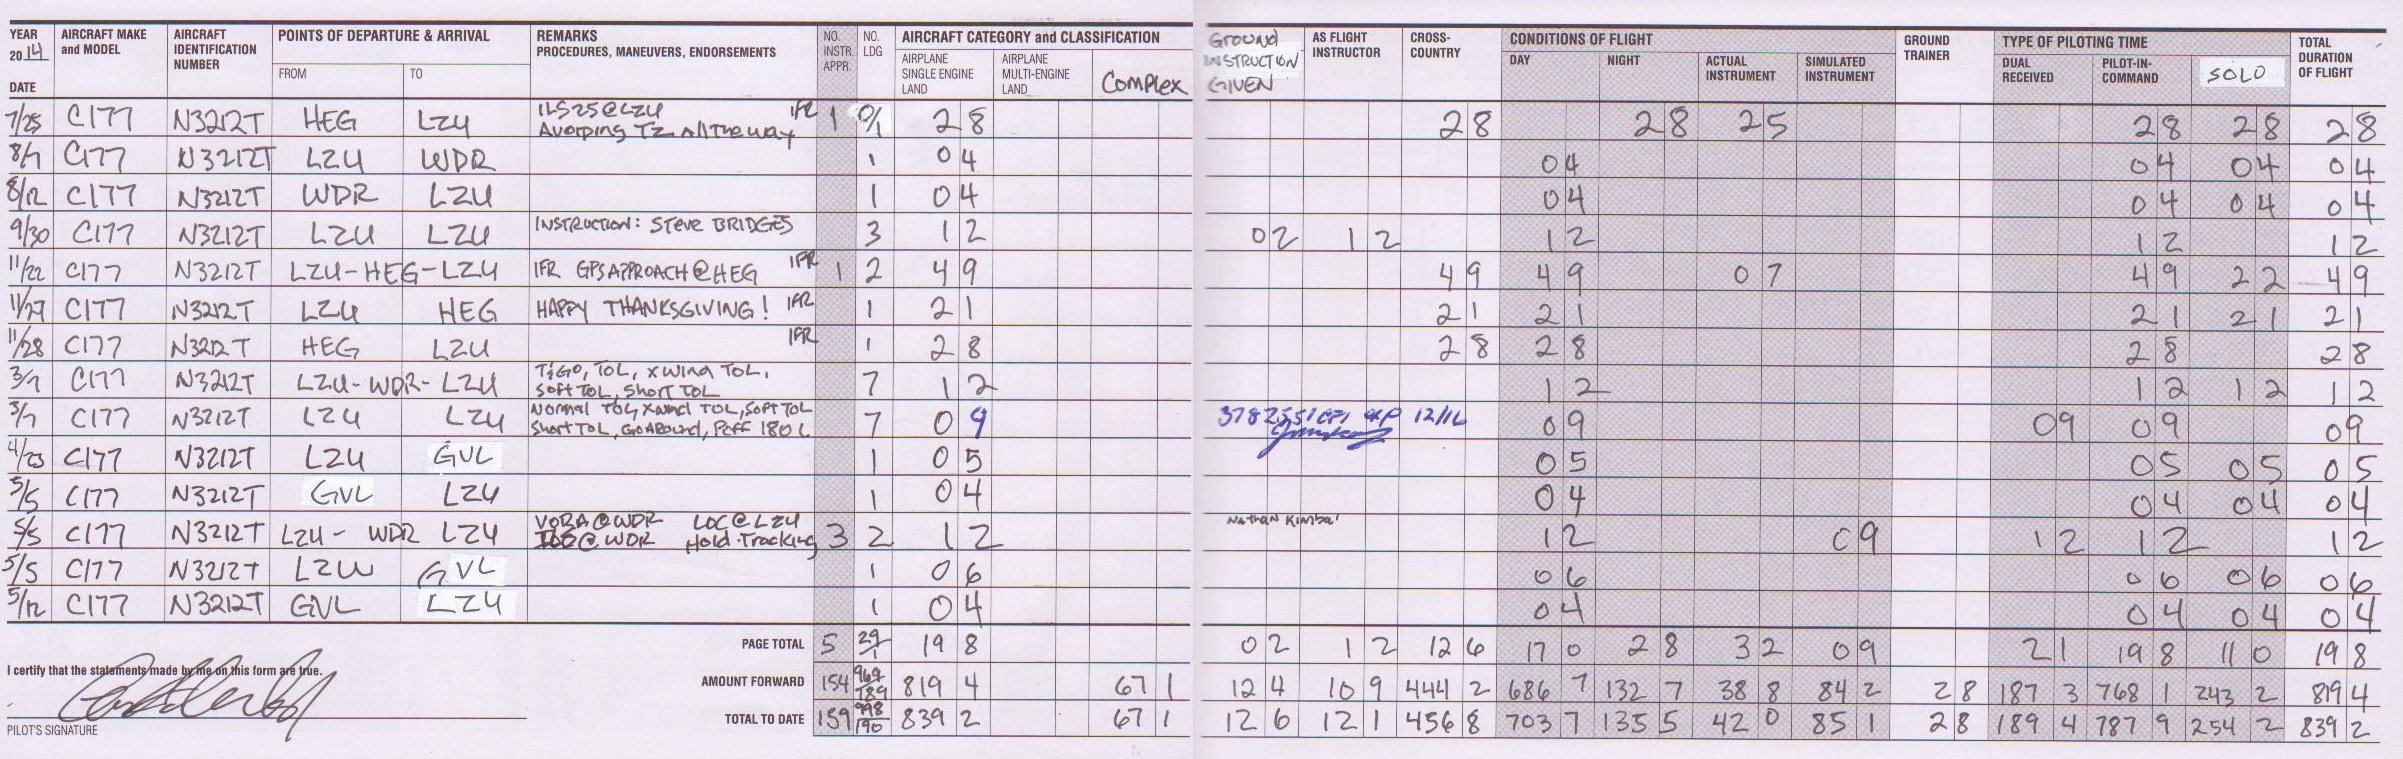 YEAR 2014 DATE AIRCRAFT MAKE and MODEL AIRCRAFT IDENTIFICATION NUMBER POINTS OF DEPARTURE & ARRIVAL FROM TO REMARKS PROCEDURES, MANEUVERS, ENDORSEMENTS NO. INSTR. APPR. NO. LDG AIRCRAFT CATEGORY and CLASSIFICATION AIRPLANE SINGLE ENGINE LAND AIRPLANE MULTI-ENGINE LAND Complex GROUND INSTRUCTION GIVEN AS FLIGHT INSTRUCTOR CROSS-COUNTRY CONDITIONS OF FLIGHT DAY NIGHT ACTUAL INSTRUMENT SIMULATED INSTRUMENT GROUND TRAINER TYPE OF PILOTING TIME DUAL RECEIVED PILOT-IN-COMMAND SOLO TOTAL DURATION OF FLIGHT
7/25 C177 N3212T HEG LZU ILS25@LZU IFR Avoiding TZ all the way 1 0/1 2 8 2 8 2 8 2 5 2 8 2 8 2 8
8/7 C177 N3212T LZU WDR 1 0 4 0 4 0 4 0 4 0 4
8/12 C177 N3212T WDR LZU 1 0 4 0 4 0 4 0 4 0 4
9/30 C177 N3212T LZU LZU INSTRUCTION: STEVE BRIDGES 3 1 2 0 2 1 2 1 2 1 2 1 2
11/22 C177 N3212T LZU-HEG-LZU IFR GPS APPROACH@HEG IFR 1 2 4 9 4 9 4 9 0 7 4 9 2 2 4 9
11/27 C177 N3212T LZU HEG HAPPY THANKSGIVING! IFR 1 2 1 2 1 2 1 2 1 2 1 2 1
11/28 C177 N3212T HEG LZU IFR 1 2 8 2 8 2 8 2 8 2 8
3/7 C177 N3212T LZU-WDR-LZU T&GO, TOL, xwind TOL, Soft TOL, Short TOL 7 1 2 1 2 1 2 1 2 1 2
3/7 C177 N3212T LZU LZU Normal TOL, Xwind TOL, Soft TOL Short TOL, GoAround, Poff 180 L 7 0 9 0 9 0 9 0 9 0 9
4/23 C177 N3212T LZU GVL 1 0 5 0 5 0 5 0 5 0 5
5/5 C177 N3212T GVL LZU 1 0 4 0 4 0 4 0 4 0 4
5/5 C177 N3212T LZU- WDR LZU VORA@WDR LOC@LZU @WDR Hold-Tracking 3 2 1 2 Nathan 1 2 0 9 1 2 1 2 1 2
5/5 C177 N3212T LZU GVL 1 0 6 0 6 0 6 0 6 0 6
5/12 C177 N3212T GVL LZU 1 0 4 0 4 0 4 0 4 0 4
PAGE TOTAL 5 29/1 19 8 0 2 1 2 12 6 17 0 2 8 3 2 0 9 2 1 19 8 11 0 19 8
I certify that the statements made by me on this form are true.
AMOUNT FORWARD 154 969/189 819 4 67 1 12 4 10 9 444 2 686 7 132 7 38 8 84 2 2 8 187 3 768 1 243 2 819 4
TOTAL TO DATE 159 998/190 839 2 67 1 12 6 12 1 456 8 703 7 135 5 42 0 85 1 2 8 189 4 787 9 254 2 839 2
PILOT'S SIGNATURE